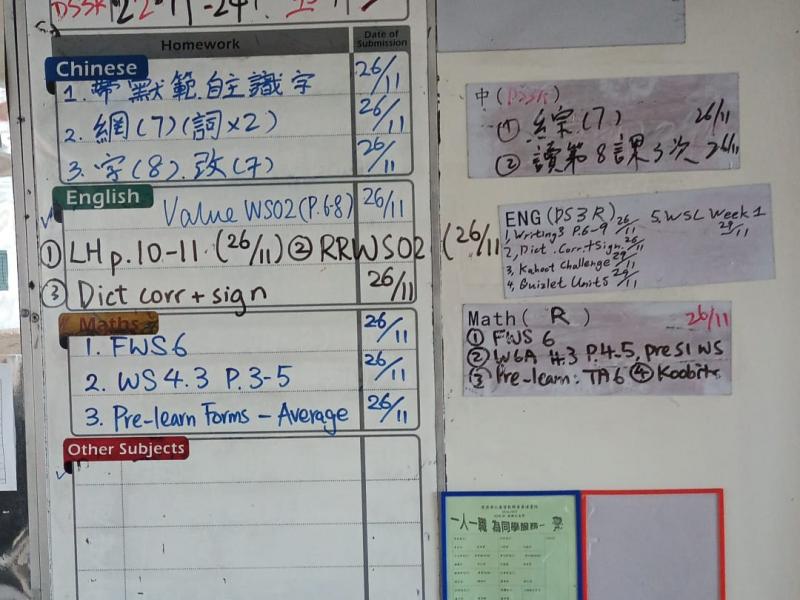 Homework
Date of Submission
Chinese
1. 帶默範.自主識字 26/11
2. 網(7)(詞x2) 26/11
3. 字(8).改(7) 26/11
English
Value WS02 (P.6-8) 26/11
① LH p.10-11 (26/11) ② RRWS02 (26/11
③ Dict corr + sign 26/11
Maths
1. FWS 6 26/11
2. WS 4.3 P.3-5 26/11
3. Pre-learn Forms - Average 26/11
Other Subjects
中(P3SR)
① 綜(7) 26/11
② 讀第8課3次 26/11
ENG (DS3R)
1, Writing3 P.6-9 26/11
2, Dict. Corr.+Sign. 26/11
3, Kahoot Challenge 29/11
4, Quizlet Unit 5 29/11
5. WSL Week 1 29/11
Math( R ) 26/11
① FWS 6
② W6A 4.3 P.4-5, pre S1 WS
③ Pre-learn: TA6 ④ Koobits
一人一職 為同學服務